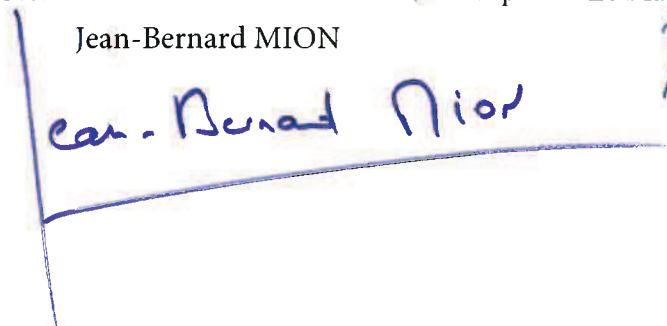 Jean-Bernard MION
Jean-Bernard Mion